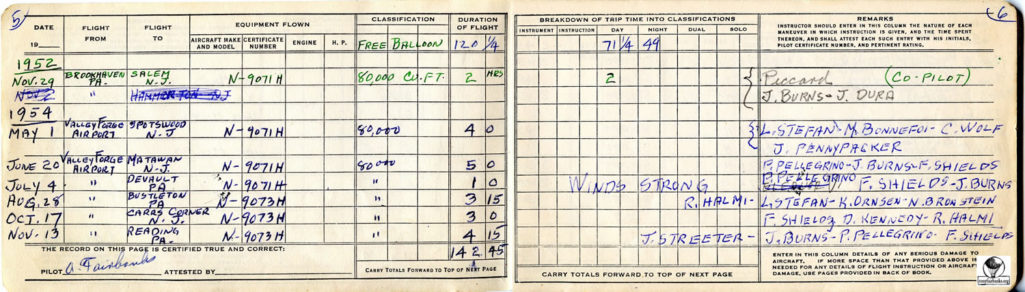 5
DATE
19
FLIGHT FROM
FLIGHT TO
EQUIPMENT FLOWN
AIRCRAFT MAKE AND MODEL
CERTIFICATE NUMBER
ENGINE
H. P.
CLASSIFICATION
FREE BALLOON
DURATION OF FLIGHT
120 1/4
1952
NOV. 29 BROOKHAVEN PA. SALEM N.J. N-9071H 80,000 CU.FT. 2 HRS
NOV. 2 " HAMMERTON NJ
1954
MAY 1 VALLEY FORGE AIRPORT SPOTSWOOD N.J. N-9071H 80,000 4 0
JUNE 20 VALLEY FORGE AIRPORT MATAWAN N.J. N-9071H 80,000 5 0
JULY 4 " DEVAULT PA N-9071H " 1 0
AUG. 28 " BUSTLETON PA N-9073H " 3 15
OCT. 17 " CARRS CORNER N.J. N-9073H " 3 0
NOV. 13 " READING PA. N-9073H " 4 15
THE RECORD ON THIS PAGE IS CERTIFIED TRUE AND CORRECT:
142 45
PILOT A. Fairbanks ATTESTED BY
CARRY TOTALS FORWARD TO TOP OF NEXT PAGE
6
BREAKDOWN OF TRIP TIME INTO CLASSIFICATIONS
INSTRUMENT
INSTRUCTION
DAY
NIGHT
DUAL
SOLO
71 1/4 49
REMARKS
INSTRUCTOR SHOULD ENTER IN THIS COLUMN THE NATURE OF EACH
MANEUVER IN WHICH INSTRUCTION IS GIVEN, AND THE TIME SPENT
THEREON, AND SHALL ATTEST EACH SUCH ENTRY WITH HIS INITIALS,
PILOT CERTIFICATE NUMBER, AND PERTINENT RATING.
2
Piccard (CO-PILOT)
J. BURNS - J. DURA
L. STEFAN - M. BONNEFOI - C. WOLF
J. PENNYPACKER
P. PELLEGRINO - J. BURNS - F. SHIELDS
WINDS STRONG
P. PELLEGRINO F. SHIELDS - J. BURNS
R. HALMI - L. STEFAN - K. ORNSEN - N. BRONSTEIN
F. SHIELDS D. KENNEDY - R. HALMI
J. STREETER - J. BURNS - P. PELLEGRINO - F. SHIELDS
CARRY TOTALS FORWARD TO TOP OF NEXT PAGE
ENTER IN THIS COLUMN DETAILS OF ANY SERIOUS DAMAGE TO
AIRCRAFT. IF MORE SPACE THAN THAT PROVIDED ABOVE IS
NEEDED FOR ANY DETAILS OF FLIGHT INSTRUCTION OR AIRCRAFT
DAMAGE, USE PAGES PROVIDED IN BACK OF BOOK.